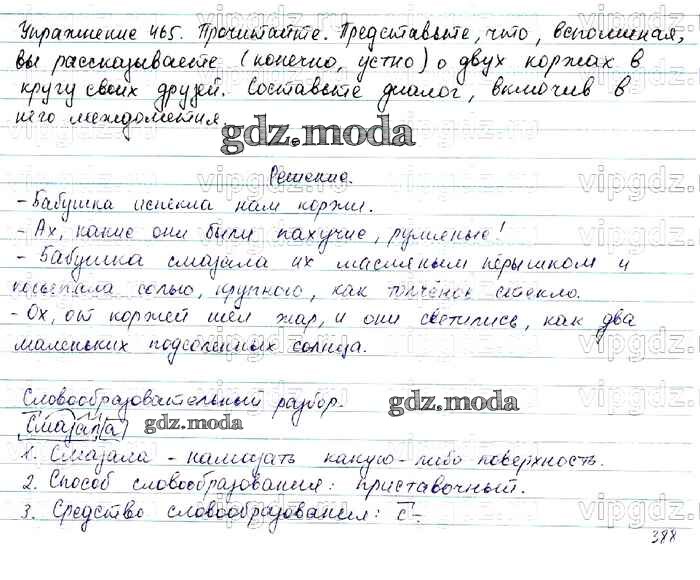 Упражнение 465. Прочитайте. Представьте, что, вспоминая,
вы рассказываете (конечно, устно) о двух коржах в
кругу своих друзей. Составьте диалог, включив в
него междометия.
gdz.moda
Решение.
- Бабушка испекла нам коржи.
- Ах, какие они были пахучие, румяные!
- Бабушка смазала их масляным пёрышком и
посыпала солью, крупною, как толчёное стекло.
- Ох, от коржей шёл жар, и они светились, как два
маленьких подсоленных солнца.
Словообразовательный разбор. gdz.moda
Смазала gdz.moda
1. Смазала - намазать какую-либо поверхность.
2. Способ словообразования: приставочный.
3. Средство словообразования: С-.
388